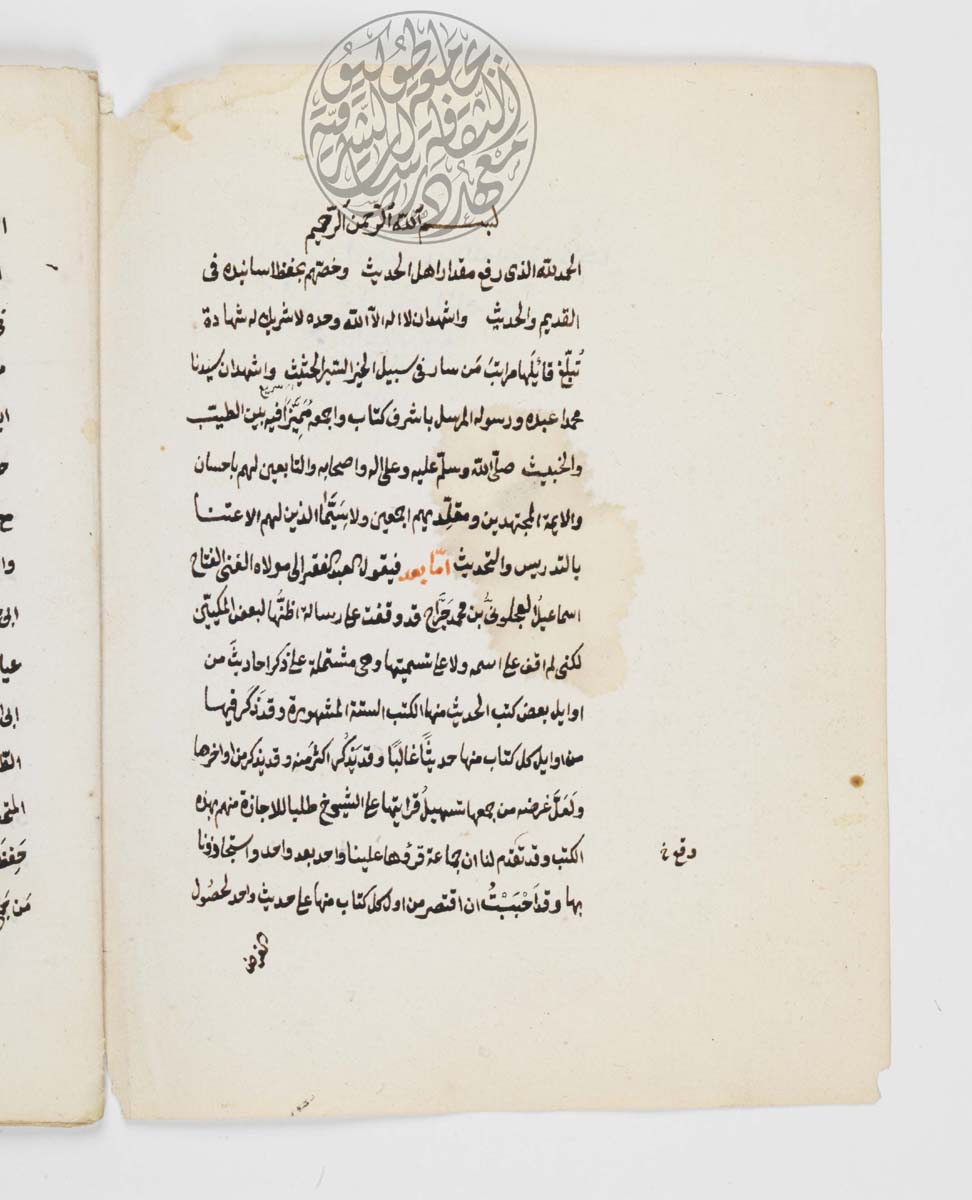 بسم الله الرحمن الرحيم
الحمد لله الذى رفع مقدار اهل الحديث وخصّهم بحفظ اسانيده فى
القديم والحديث واشهد ان لا اله الّا الله وحده لا شريك له شهادة
تُبلّغ قائلَها مراتبَ مَن سار فى سبيل الخير السير الحثيث واشهد ان سيدنا
محمدا عبده ورسوله المرسل باشرف كتاب واجمعه مُمَيِّزًا فيه بين الطيب
والخبيث صلّى الله وسلّم عليه وعلى اله واصحابه والتابعين لهم باحسان
والايمة المجتهدين ومقلّديهم اجمعين ولا سَيَّمَا الذين لهم الاعتنا
بالتدريس والتحديث امّا بعد فيقول العبد الفقير الى مولاه الغنى الفتاح
اسماعيلُ العجلونىُّ بن محمد جَرَّاح قد وقفت على رسالة اظنُّها لبعض المكيّين
لكنى لم اقف على اسمه ولا على تسميتها وهى مشتملة على ذكر احاديثَ من
اوايل بعض كتب الحديث منها الكتب الستة المشهورة وقد ذَكَر فيها
من اوايل كل كتاب منها حديثًا غالبًا وقد يَذكُر اكثرَ منه وقد يذكر من اواخرها
ولَعَلَّ غرضه من جمعها تسهيلُ قرايتها على الشيوخ طلبا للاجازة منهم بهذه
الكتب وقد تقدم لنا ان جماعة قرؤها علينا واحد بعد واحد واستجاذونا
وقع خ
بها وقد اَحْبَبْتُ ان اقتصر من اول كل كتاب منها على حديث واحد لحصول
الغرض